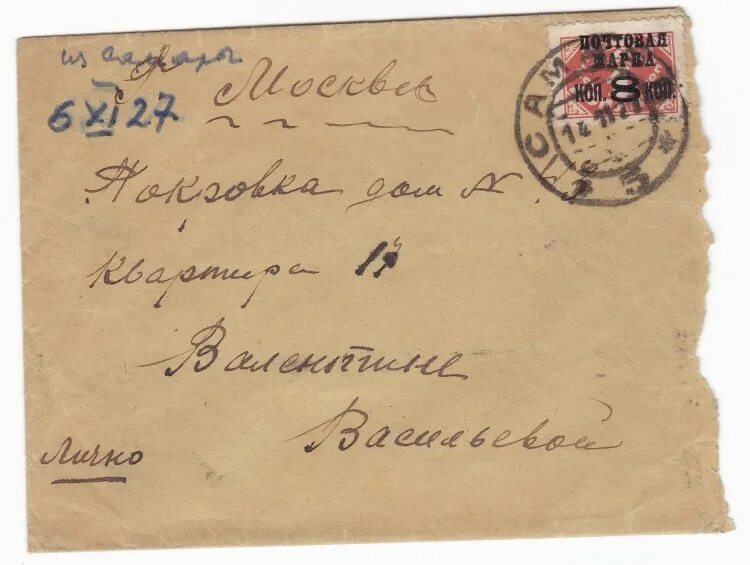 из Самары
6 XI 27
Москва
Покровка дом N
Квартира 17
Валентине
Васильевой
Лично
ПОЧТОВАЯ
МАРКА
КОП. 8 КОП.
САМ
14 11 27